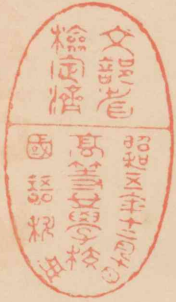 文部省
檢定濟
昭和五年十二月
高等女學校
國語科用